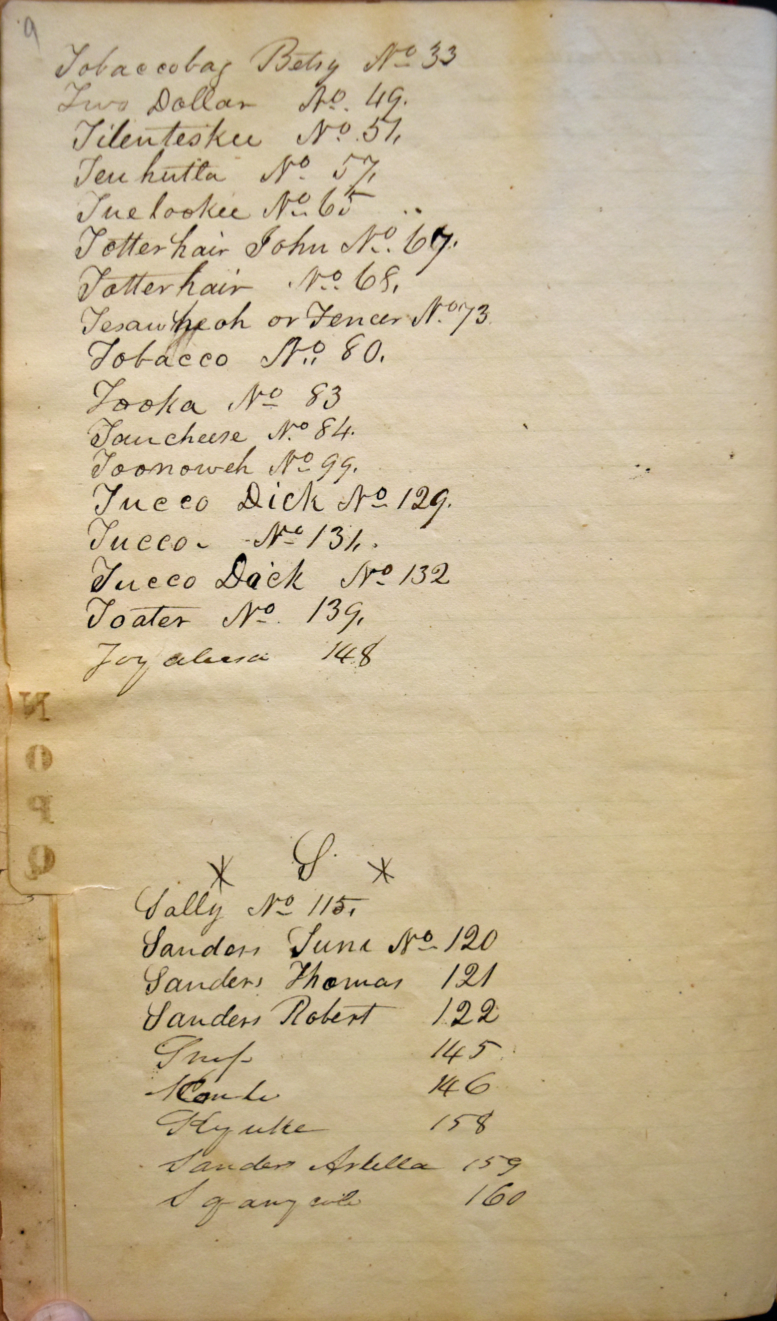 9
Tobaccobag Betsy No 33
Two Dollar No. 49.
Tilenteskee No. 51,
Teuhutla No 57,
Tuelookee No 65
Totterhair John No. 67.
Totterhair No. 68,
Tesawheoh or Fencer No. 73
Tobacco No. 80.
Tooka No 83
Tauchese No. 84.
Toonoweh No 99.
Tucco Dick No 129.
Tucco No 131,
Tucco Dick No 132
Toater No. 139,
148
N
O
P
Q
S
Sally No 115,
Sanders No 120
Sanders Thomas 121
Sanders Robert 122
145
146
158
Sanders 159
160